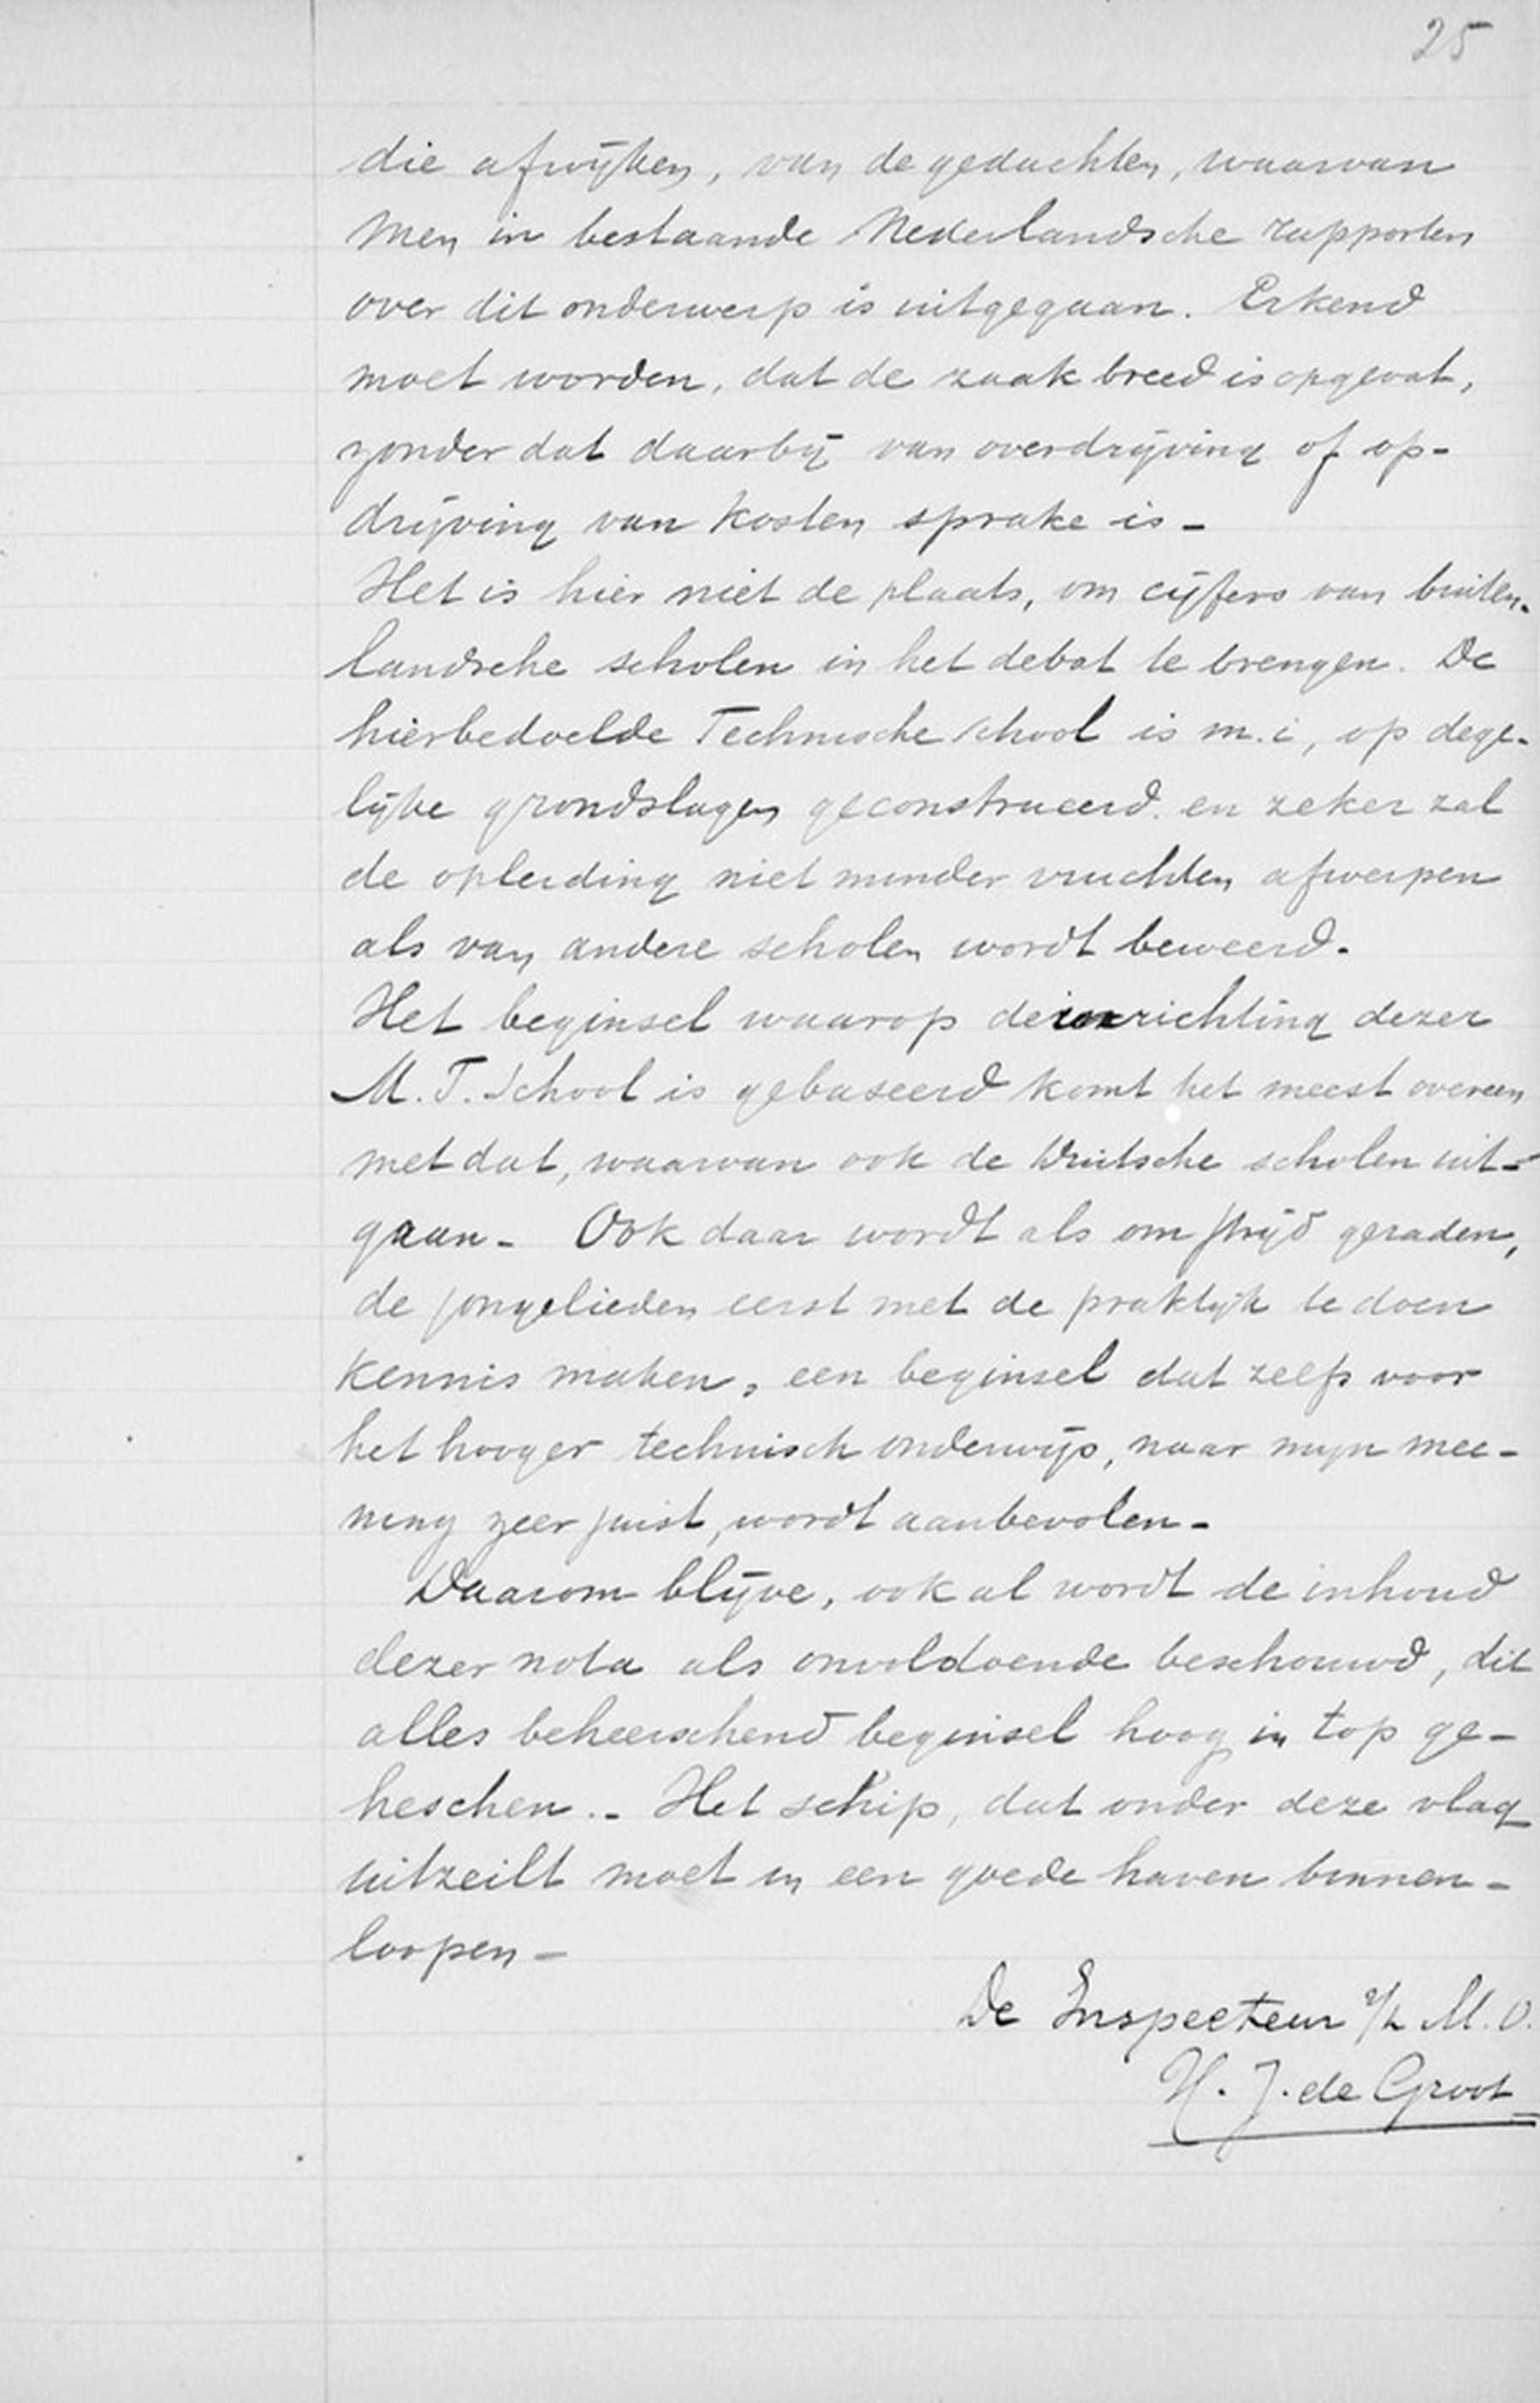 25
die afwijken, van de gedachten, waarvan
men in bestaande Nederlandsche rapporten
over dit onderwerp is uitgegaan. Erkend
moet worden, dat de zaak breed is opgevat,
zonder dat daarbij van overdrijving of op-
drijving van kosten sprake is -
Het is hier niet de plaats, om cijfers van buiten-
landsche scholen in het debat te brengen. De
hierbedoelde Technische school is m.i, op dege-
lijke grondslagen geconstrueerd. en zeker zal
de opleiding niet minder vruchten afwerpen
als van andere scholen wordt beweerd.
Het beginsel waarop de inrichting dezer
M. T. School is gebaseerd komt het meest overeen
met dat, waarvan ook de Duitsche scholen uit-
gaan - Ook daar wordt als om strijd geraden,
de jongelieden eerst met de praktijk te doen
kennis maken, een beginsel dat zelfs voor
het hooger technisch onderwijs, naar mijn mee-
ning zeer juist, wordt aanbevolen -
Daarom blijve, ook al wordt de inhoud
dezer nota als onvoldoende beschouwd, dit
alles beheerschend beginsel hoog in top ge-
heschen. - Het schip, dat onder deze vlag
uitzeilt moet in een goede haven binnen-
loopen -
De Inspecteur v/h M. O.
H. J. de Groot